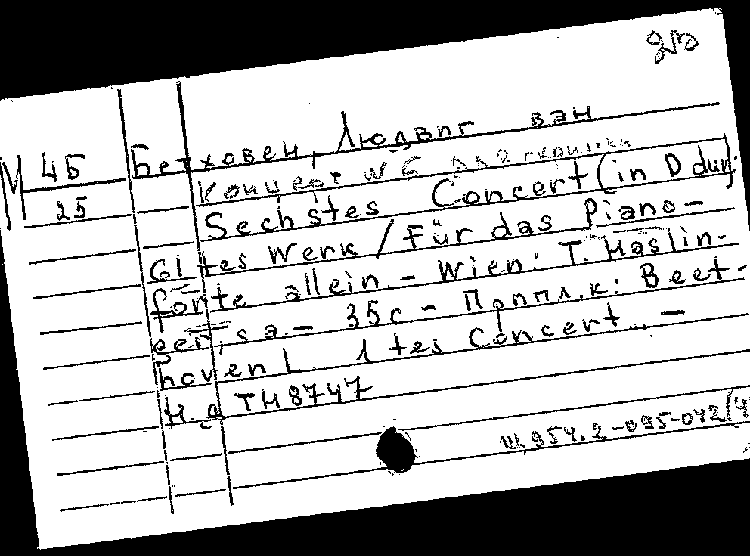 М 45
25
Бетховен, Людвиг ван
Концерт № 6 для скрипки
Sechstes Concert (in D dur).
61 tes Werk / Für das Piano-
forte allein. - Wien: T. Haslin-
ger, s.a. - 35c - Приплл.к: Beet-
hoven L. 1 tes Concert... -
Н.д TH 8747
Ш 954.2-095-042